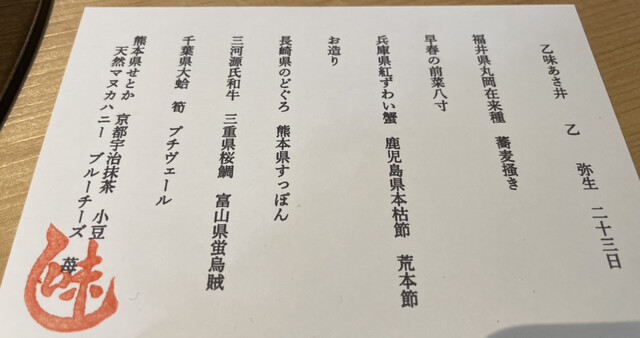 乙味あさ井　乙　弥生　二十三日
福井県丸岡在来種　蕎麦掻き
早春の前菜八寸
兵庫県紅ずわい蟹　鹿児島県本枯節　荒本節
お造り
長崎県のどぐろ　熊本県すっぽん
三河源氏和牛　三重県桜鯛　富山県蛍烏賊
千葉県大蛤　筍　プチヴェール
熊本県せとか　京都宇治抹茶　小豆　苺
天然マヌカハニー　ブルーチーズ
味